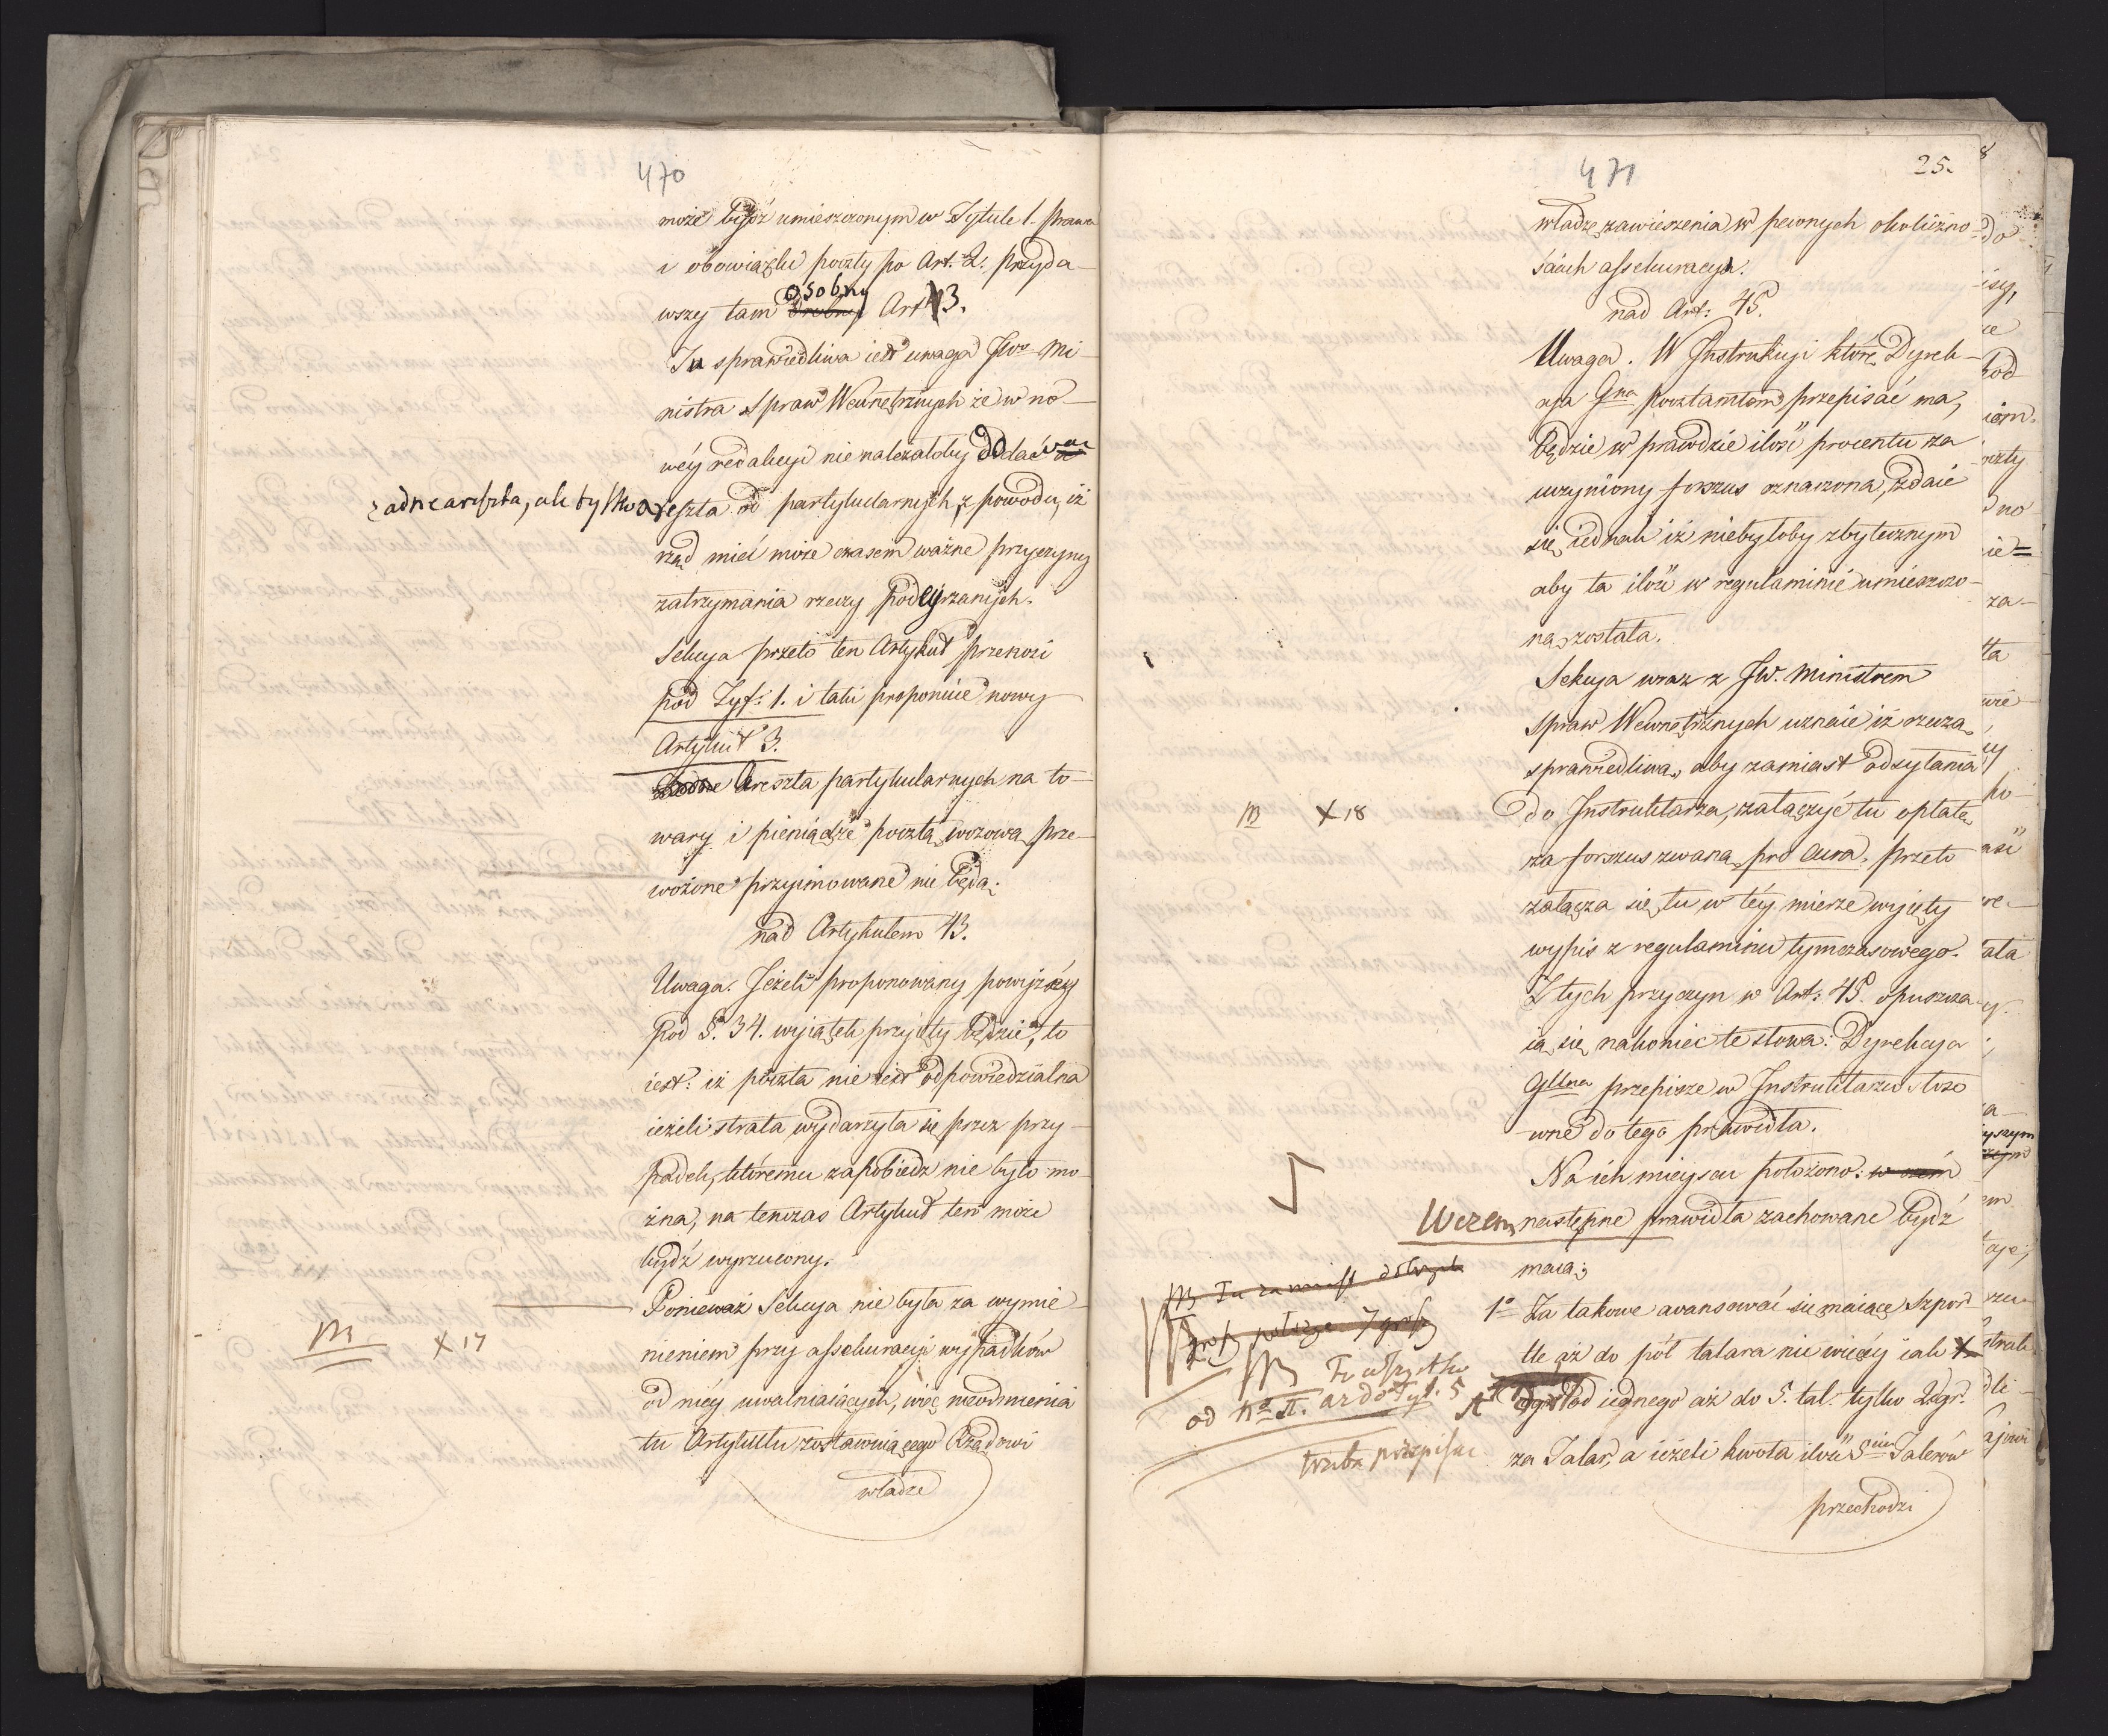 470
może bydź umieszczonym w Tytule 1. prawa
i obowiązki poczty po Art. 2. przyda-
wszy tam osobny Art 3.
Tu sprawiedliwa iest uwaga JWo Mi-
nistra Spraw Wewnętrznych że w no-
wéy redakcyi nie należałoby dodawać
żadne areszta, ale tylko areszta od partykularnych, z powodu, iż
rząd mieć może czasem ważne przyczyny
zatrzymania rzeczy podeyrzanych.
Sekcya przeto ten Artykuł przenosi
pod Tyt: 1. i taki proponuie nowy
Artykuł 3.
Areszta partykularnych na to-
wary i pieniądze pocztą wozową prze-
wożone przyimowane nie będą.
nad Artykułem 43.
Uwaga. Jeżeli proponowany powyżéy
pod §. 34. wyiątek przyięty będzie, to
iest: iż poczta nie iest odpowiedzialna
ieżeli strata wydarzyła się przez przy-
padek, któremu zapobiedz nie było mo-
żna, na tenczas Artykuł ten może
bydź wyrzucony.
Ponieważ Sekcya nie była za wymie-
M X 17 nieniem przy assekuracyi wypadków
od niéy uwalniaiących, więc nieodmienia
tu Artykułu zostawuiącego Rządowi
władze
471
25.
władzę zawieszenia w pewnych okoliczno-
ściach assekuracyi.
nad Art: 45.
Uwaga. W Instrukcyi którę Dyrek-
cya Gna pocztamtom przepisać ma,
będzie w prawdzie ilość procentu za
uczyniony forszus oznaczona, zdaie
się iednak iż niebyłoby zbytecznym
aby ta ilość w regulaminie umieszczo-
na została.
Sekcya wraz z JW. Ministrem
Spraw Wewnętrznych uznaie iż rzeczą
sprawiedliwą, aby zamiast odsyłania
M X 18 do Instruktarza, załączyć tu opłatę
za forszus zwaną pro Cura, przeto
załącza się tu w téy mierze wyięty
wypis z regulaminu tymczasowego.
Z tych przyczyn w Art: 45. opuszcza-
ią się nakoniec te słowa: Dyrekcya
Gllna przepisze w Instruktarzu stoso
wne do tego prawidła.
Na ich mieyscu położono: w czém
W czem następne prawidła zachowane bydź
maią;
M Tu zamiast
1o Za takowe avansować się maiące Szpor-
tle aż do pół talara nie więcéy iak
M Tu wszystko
od No II. aż do Tyt. 5
od iednego aż do 5. tal. tylko 2dgr.
trzeba przepisać
za Talar, a ieżeli kwota ilość 5ciu Talerów
przechodzi